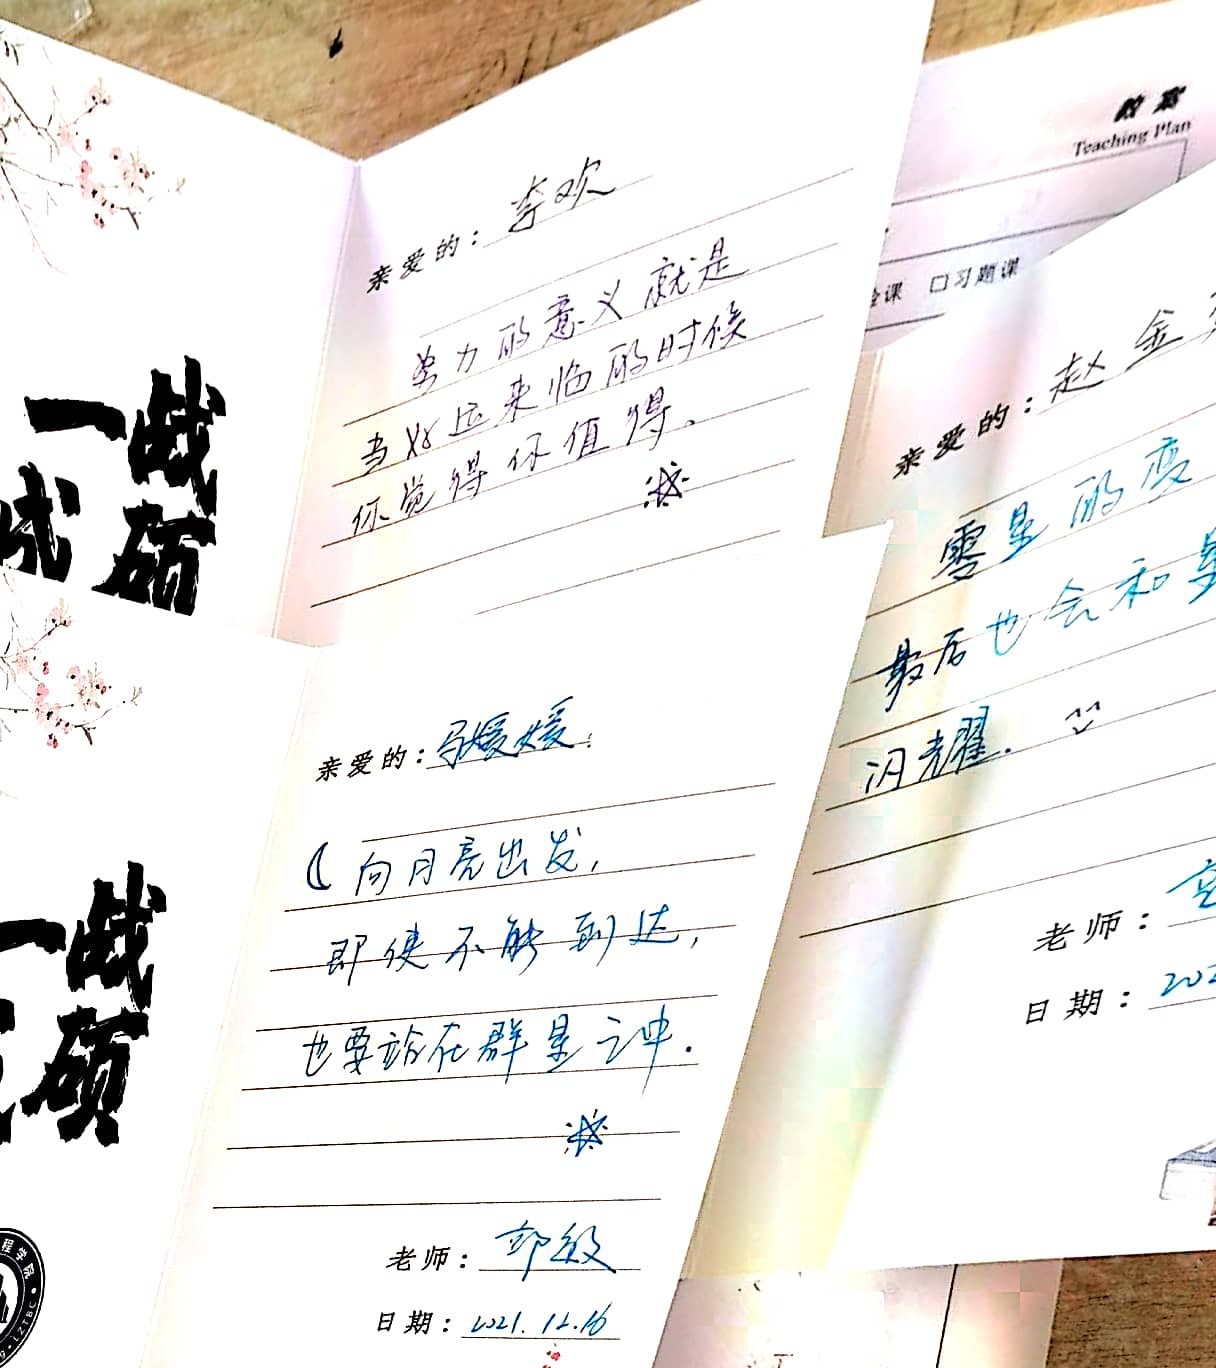 教案
Teaching Plan
课 口习题课
亲爱的：李欢
努力的意义就是
当好运来临的时候
你觉得你值得。
一战
成硕
亲爱的：赵金
零星的变
最后也会和
闪光耀.
老师：
日期：202
亲爱的：马媛媛：
向月亮出发,
即使不能到达,
也要站在群星之中.
老师：郭敏
日期：2021.12.16
一战
硕
程学院
LZTBC